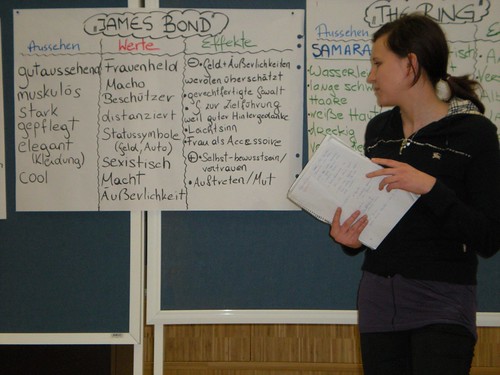 JAMES BOND
Aussehen
gutaussehend
muskulös
stark
gepflegt
elegant
(Kleidung)
cool
Werte
Frauenheld
Macho
Beschützer
distanziert
Statussymbole
(Geld, Auto)
sexistisch
Macht
Äußerlichkeit
Effekte
- Geld + Äußerlichkeiten
werden überschätzt
gerechtfertigte Gewalt
zur Zielführung
weil guter Hintergedanke
Leichtsinn
Frau als Accessoire
+ Selbst-bewusstsein/
vertrauen
Auftreten/Mut
THE RING
Aussehen
SAMARA
lange